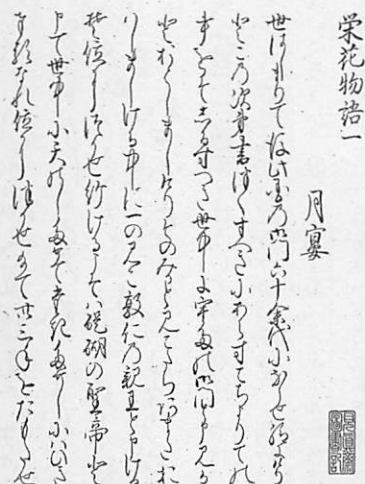 栄花物語一
月宴
世はしまりて後此国の御門六十余代にならせ給にけれ
とこの次第書つくすへきにあらすこちよりての
事をそしるすへき世中に宇多の御門と申みか
とおはしましけりそのみかとのみこたちあまたお
はしましける中に一のみこ敦仁の親王と申ける
そ位につかせ給けるこそは醍醐の聖帝と
申て世中に天の下めてたきためしにひき
奉るなれ位につかせ給て卅三年をたもたせ